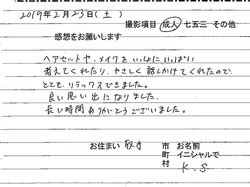 2019年2月23日(土)
撮影項目 成人 七五三 その他
感想をお願いします
ヘアセットや、メイクをいっしょにいっぱい
考えてくれたり、やさしく話しかけてくれたので、
とても、リラックスできました。
良い思い出になりました。
長い時間ありがとうございました。
お住まい 市 お名前
町 イニシャルで
村 K.S